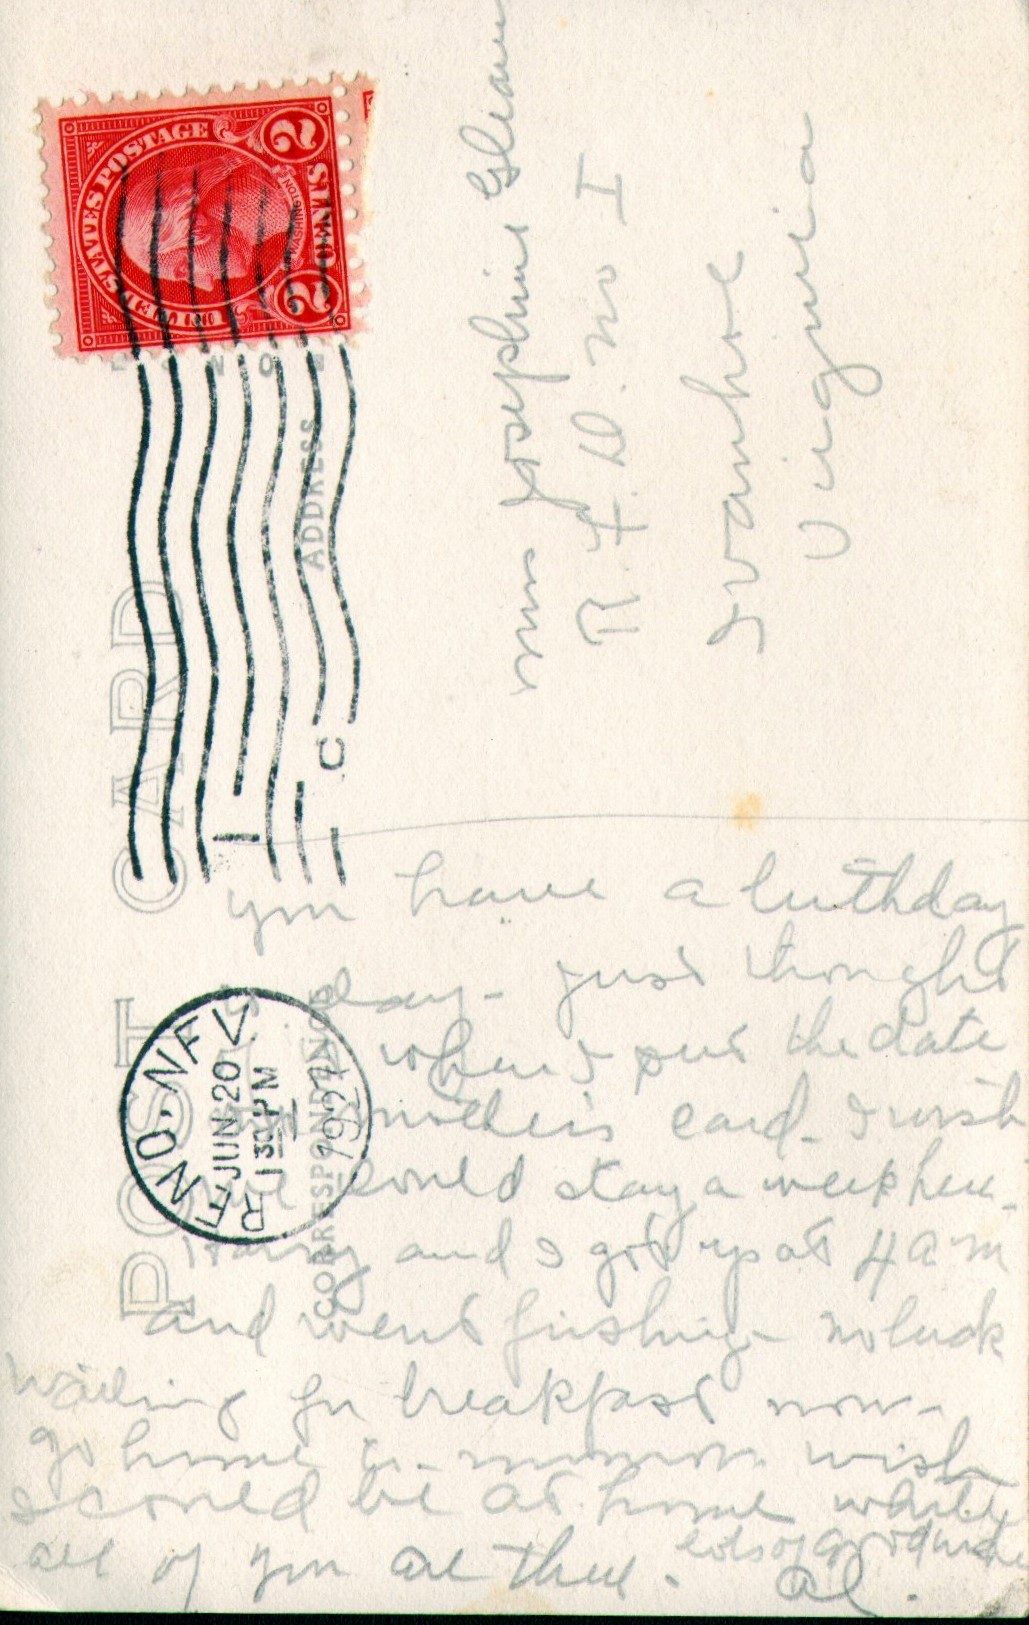 POST CARD
CORRESPONDENCE
ADDRESS
PLACE
UNITED STATES POSTAGE
WASHINGTON
2 CENTS 2
RENO, NEV
JUN 20
130 PM
1927
Miss Josephine
R. F. D. no I
Ivanhoe
Virginia
you have a birthday
day - just thought
when I put the date
mothers card - I wish
could stay a week here.
Harry and I got up at 4 a m
and went fishing - no luck
waiting for breakfast now -
go home in wish
I could be at home while
all of you are there.
lots of good
Al.